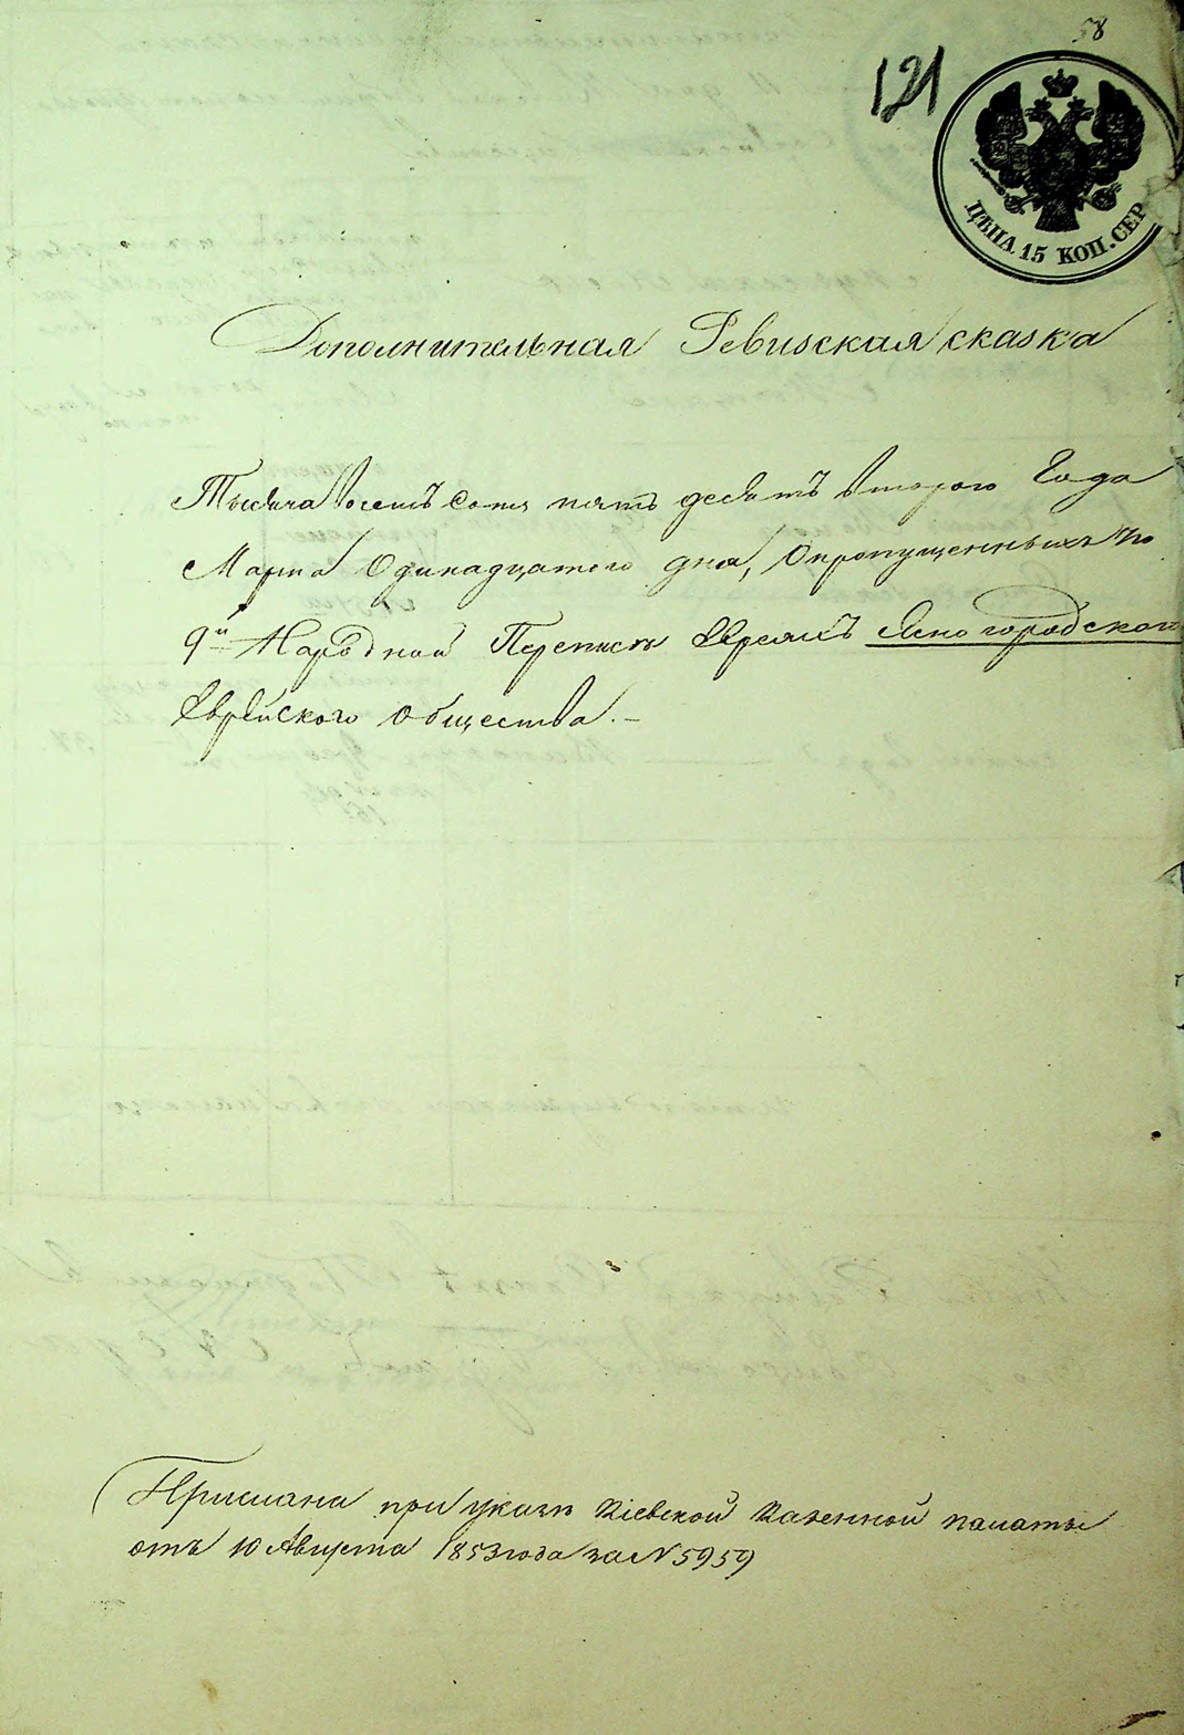 58
121
ЦѢНА 15 КОП. СЕР
Дополнительная Ревизская сказка
Тысяча восемъ сотъ пять десятъ втораго Года
Марта Одинадцатого дня, О пропущенныхъ по
9й Народной Переписи Евреяхъ Ясногородского
Еврейского Общества. –
Прислана при указѣ Кіевской Казенной палаты
отъ 10 Августа 1853 года за № 5959